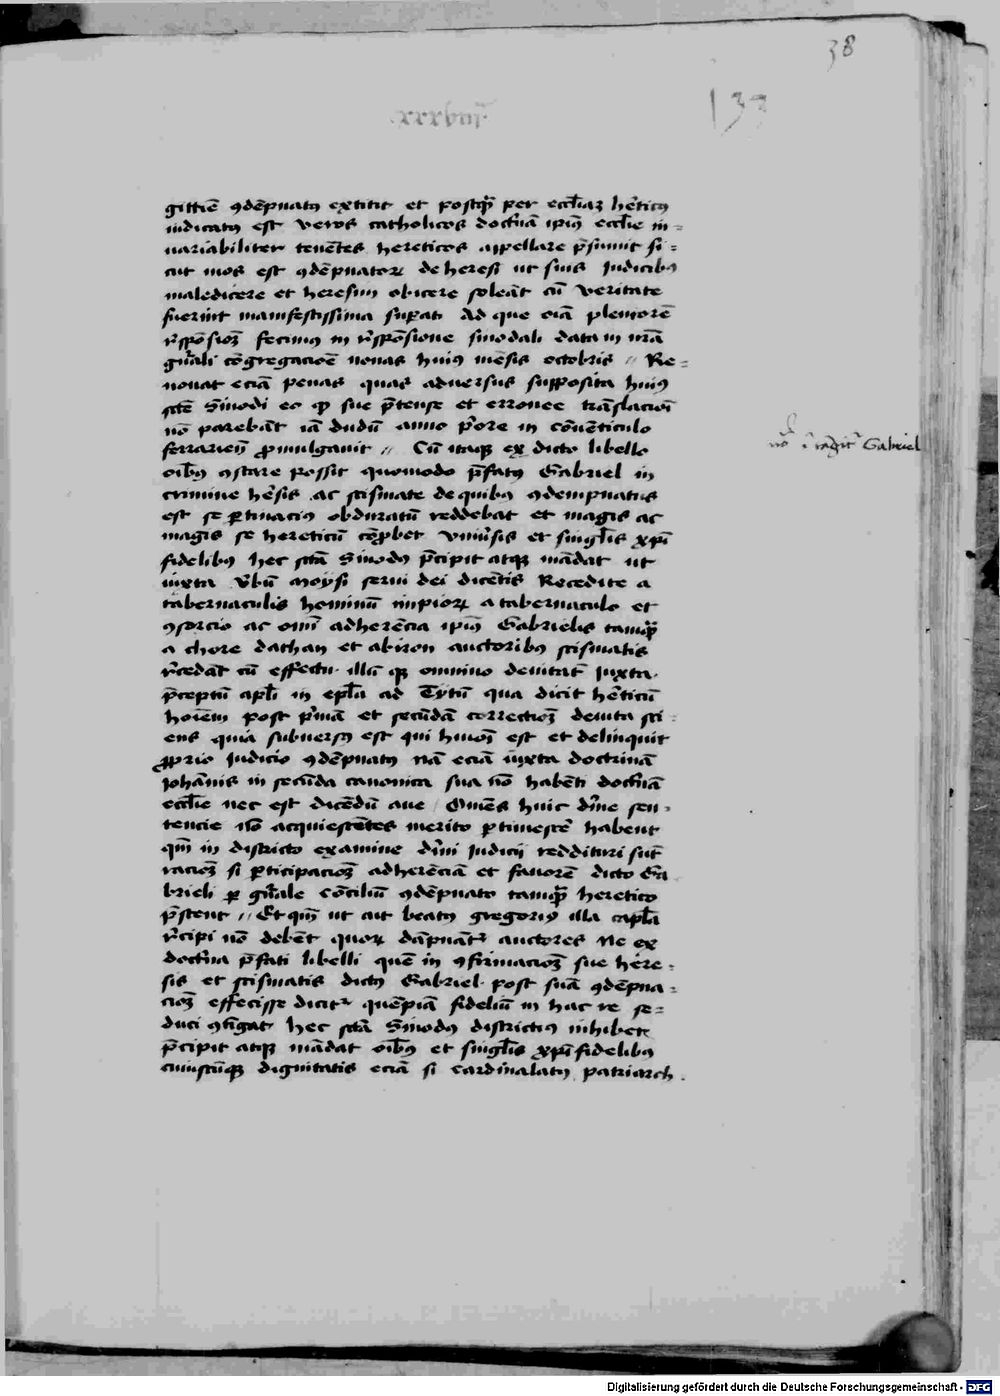 38
133
xxxviij
gittie ꝯdēpnatꝰ extitit et postqᷓ per eccl̄iaꝫ hētic9
iudicatꝰ est veros catholicos doctͥnā ipiꝰ eccl̄ie in=
uariabiliter tenētes hereticos appellare p̄sumit si=
cut mos est ꝯdēpnatoꝝ de heresi ut suis Iudicibꝰ
maledicere et heresim obicere soleāt cū veritate
fuerint manifestissima suꝑati Ad que oīa pleniorē
r̄spōsioꝫ fecimꝰ in r̄sponsione sinodali data in nrā
gn̄ali cōgregacioē nonas huiꝰ mēsis octobris // Re=
nouat eciā penas quas adversus supposita huiꝰ
scē Sinodi eo ꝙ sue p̄tense et erronee trāslacioī
nō parebāt iā dudū anno p̄ore in cōuēticulo
ferrarien̄ ꝓmulgauit // Cū itaqꝫ ex dicto libello
oībꝰ ꝯstare possit quomodo p̄fatꝰ Gabriel in
crimine hēsis ac scismate de quibꝰ ꝯdempnatus
est se ꝑtinaciꝰ obduratū reddebat et magis ac
magis se hereticū cōꝓbet vniu̓sis et singl̄is xp̄i
fidelibꝰ hec sctā Sinodꝰ p̄cipit atqꝫ mādat ut
iuxta v̓bū Moysi serui dei dicētis Recedite a
tabernaculis hominū impioꝝ a tabernaculo et
ꝯsorcio ac om̄i adherēcia ipiꝰ Gabrielis tamqᷓ
a chore dathan et abiron auctoribꝰ scismatis
r̄cedāt cū effectu illū qꝫ omnino deuitāt Iuxta
p̄ceptū apl̄i in epl̄a ad Tytū qua dicit hēticū
hoīem post p̄mā et secūdā correctioꝫ deuita sci=
ens quia subuersꝰ est qui hmōi est et delinquit
ꝓprio Iudicio ꝯdēpnatꝰ nā eciā iuxta doctrinā
Iohānis in secūda canonica sua nō habēti doctͥnā
eccl̄ie nec est dicēdū aue Om̄es huic dīne sen=
tencie nō acquiescētes merito ꝑtimescē habent
qm̄ in districto examine dīni Iudicij reddituri sūt
racioꝫ si ꝑticipacioꝫ adherēciā et fauorē dicto Ga
brieli ꝑ gn̄ale cōciliū ꝯdēpnato tamqᷓ heretico
p̄stent // Et qm̄ ut ait beatꝰ gregoriꝰ illa capl̄a
r̄cipi nō debēt quoꝝ dāpnāt᷑ auctores Ne ex
doctͥna p̄fati libelli quē in ꝯfirmacioꝫ sue here=
sis et scismatis dictꝰ Gabriel post suā ꝯdēpna=
cioꝫ effecisse dicit᷑ quēpiā fidelīu in hac re se=
duci ꝯtīgat hec sctā Sinodꝰ districtiꝰ inhibet
p̄cipit atqꝫ mādat oībꝰ et singl̄is xp̄i fidelibꝰ
cuiuscūqꝫ dignitatis eciā si cardinalatꝰ patriarch
Gabriel
Digitalisierung gefördert durch die Deutsche Forschungsgemeinschaft - DFG